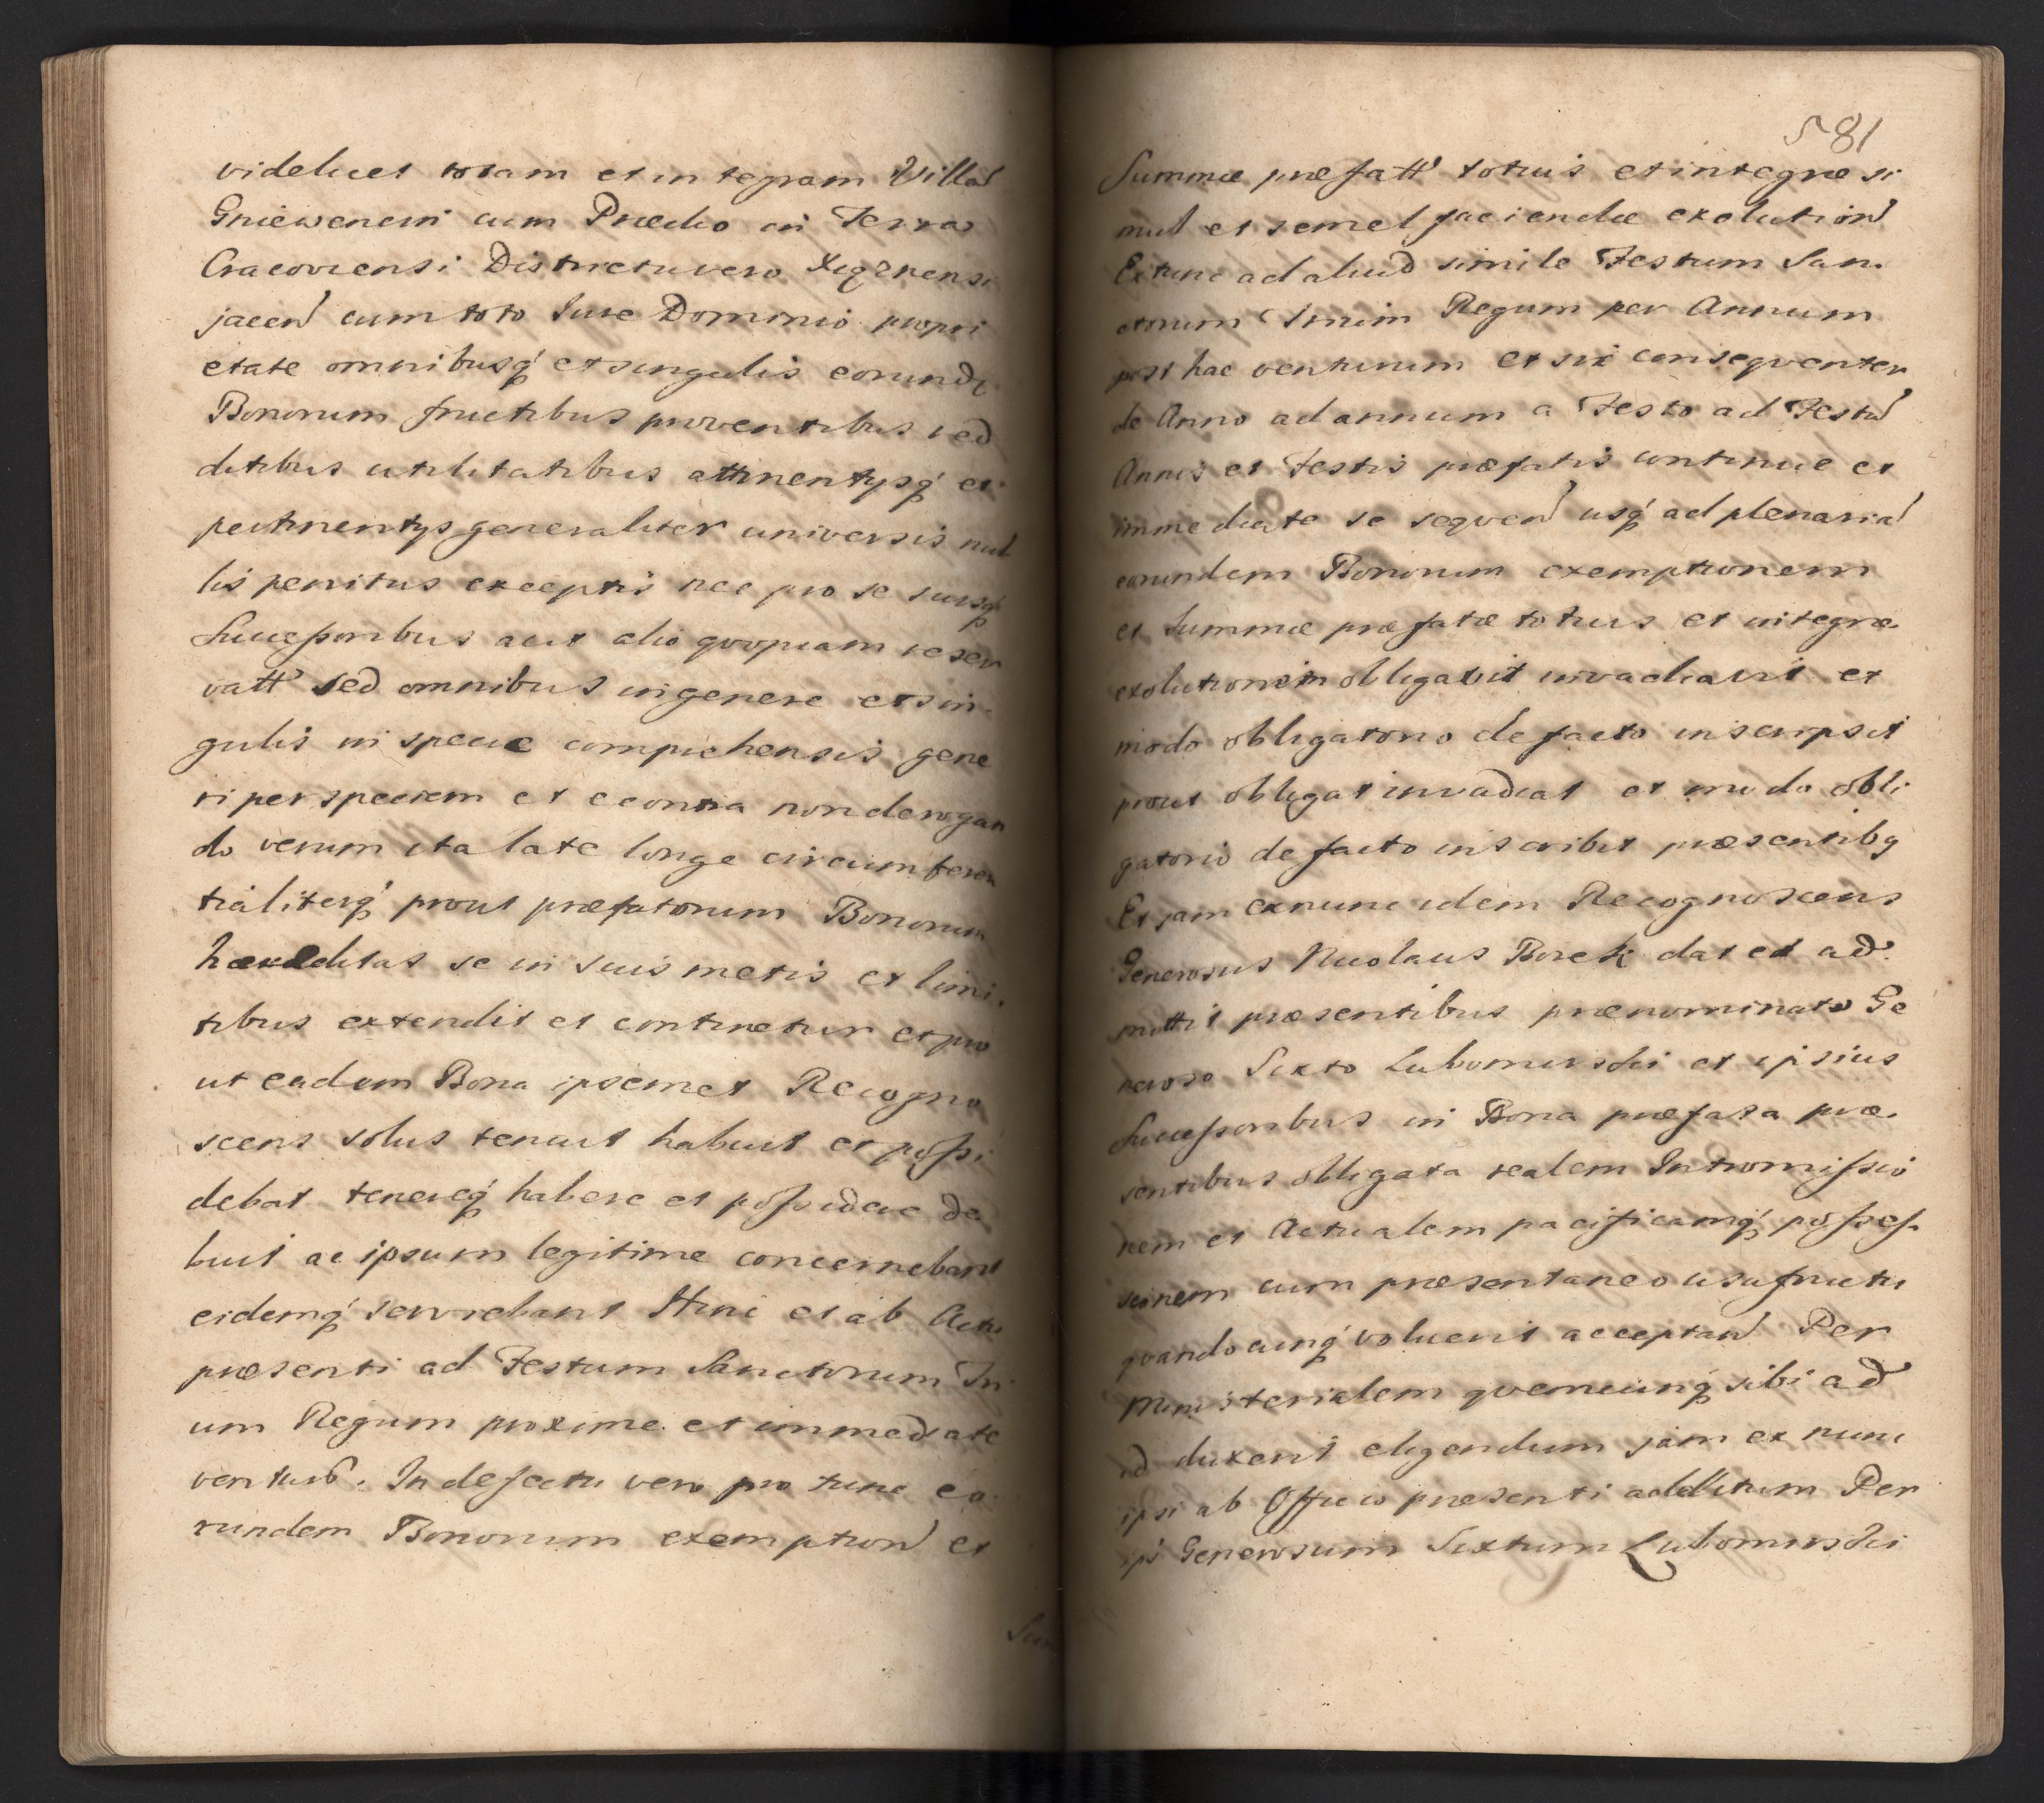 videlicet totam et integram Villad
Gniewenem cum Prædio in Terra
Cracoviensi Districtu vero Xięznensi
jacen̄ cum toto Jure Dominio propri
etate omnibusq́ et singulis eorundę
Bonorum fructibus proventibus red
ditibus utilitatibus attinentÿsq́ et
pertinentÿs generaliter universis nul
lis penitus exceptis nec pro se suisq́
Successoribus aut alio qvopiam reser
vatt' sed omnibus in genere et sin.
gulis in specie comprehensis gene
ri per speciem et econtra non derogan
do verum ita late longe circumferen
tialiterq́ prout præfatorum Bonorum
hæreditas se in suis metis et limi.
tibus extendit et continetur et pro
ut eadem Bona ipsemet Recogno
scens solus tenuit habuit et possi
debat tenereq́ habere et possidere de
buit ac ipsum legitime concernebant
eidemq́ serviebant Hinc et ab Actu
præsenti ad Festum Sanctorum Tri
um Regum proxime et immediate
ventur̄. In defectu vero pro tunc eo.
rundem Bonorum exemption̄ et
Sum
581
Summæ præfatt' totius et integræ si
mul et semel faciendæ exolution̄
Extunc ad aliud simile Festum San.
ctorum Trium Regum per Annum
post hac venturum et sic conseqventer
de Anno ad annum a Festo ad Festū
Annis et Festis præfatis continue et
immediate se seqven̄ usq́ ad plenariā
eorundem Bonorum exemptionem
et Summæ præfatæ totius et integræ
exolutionem obligavit invadiavit et
modo obligatorio de facto inscripsit
prout obligat invadiat et modo obli
gatorio de facto inscribit præsentibꝯ
Et jam exnunc idem Recognoscens
Generosus Nicolaus Borek dat et ad.
mittit præsentibus prænominato Ge
neroso Sixto Lubomirski et ipsius
Successoribus in Bona præfata præ.
sentibus obligata realem Intromissio
nem et Actualem pacificamq́ posses.
sionem cum præsentaneo usufructu
qvandocunq́ voluerit acceptan̄ Per
Ministerialem qvemcunq́ sibi ad
id duxerit eligendum jam ex nunc
ipsi ab Officio præsenti additum Per
ips' Generosum Sixtum Lubomirski